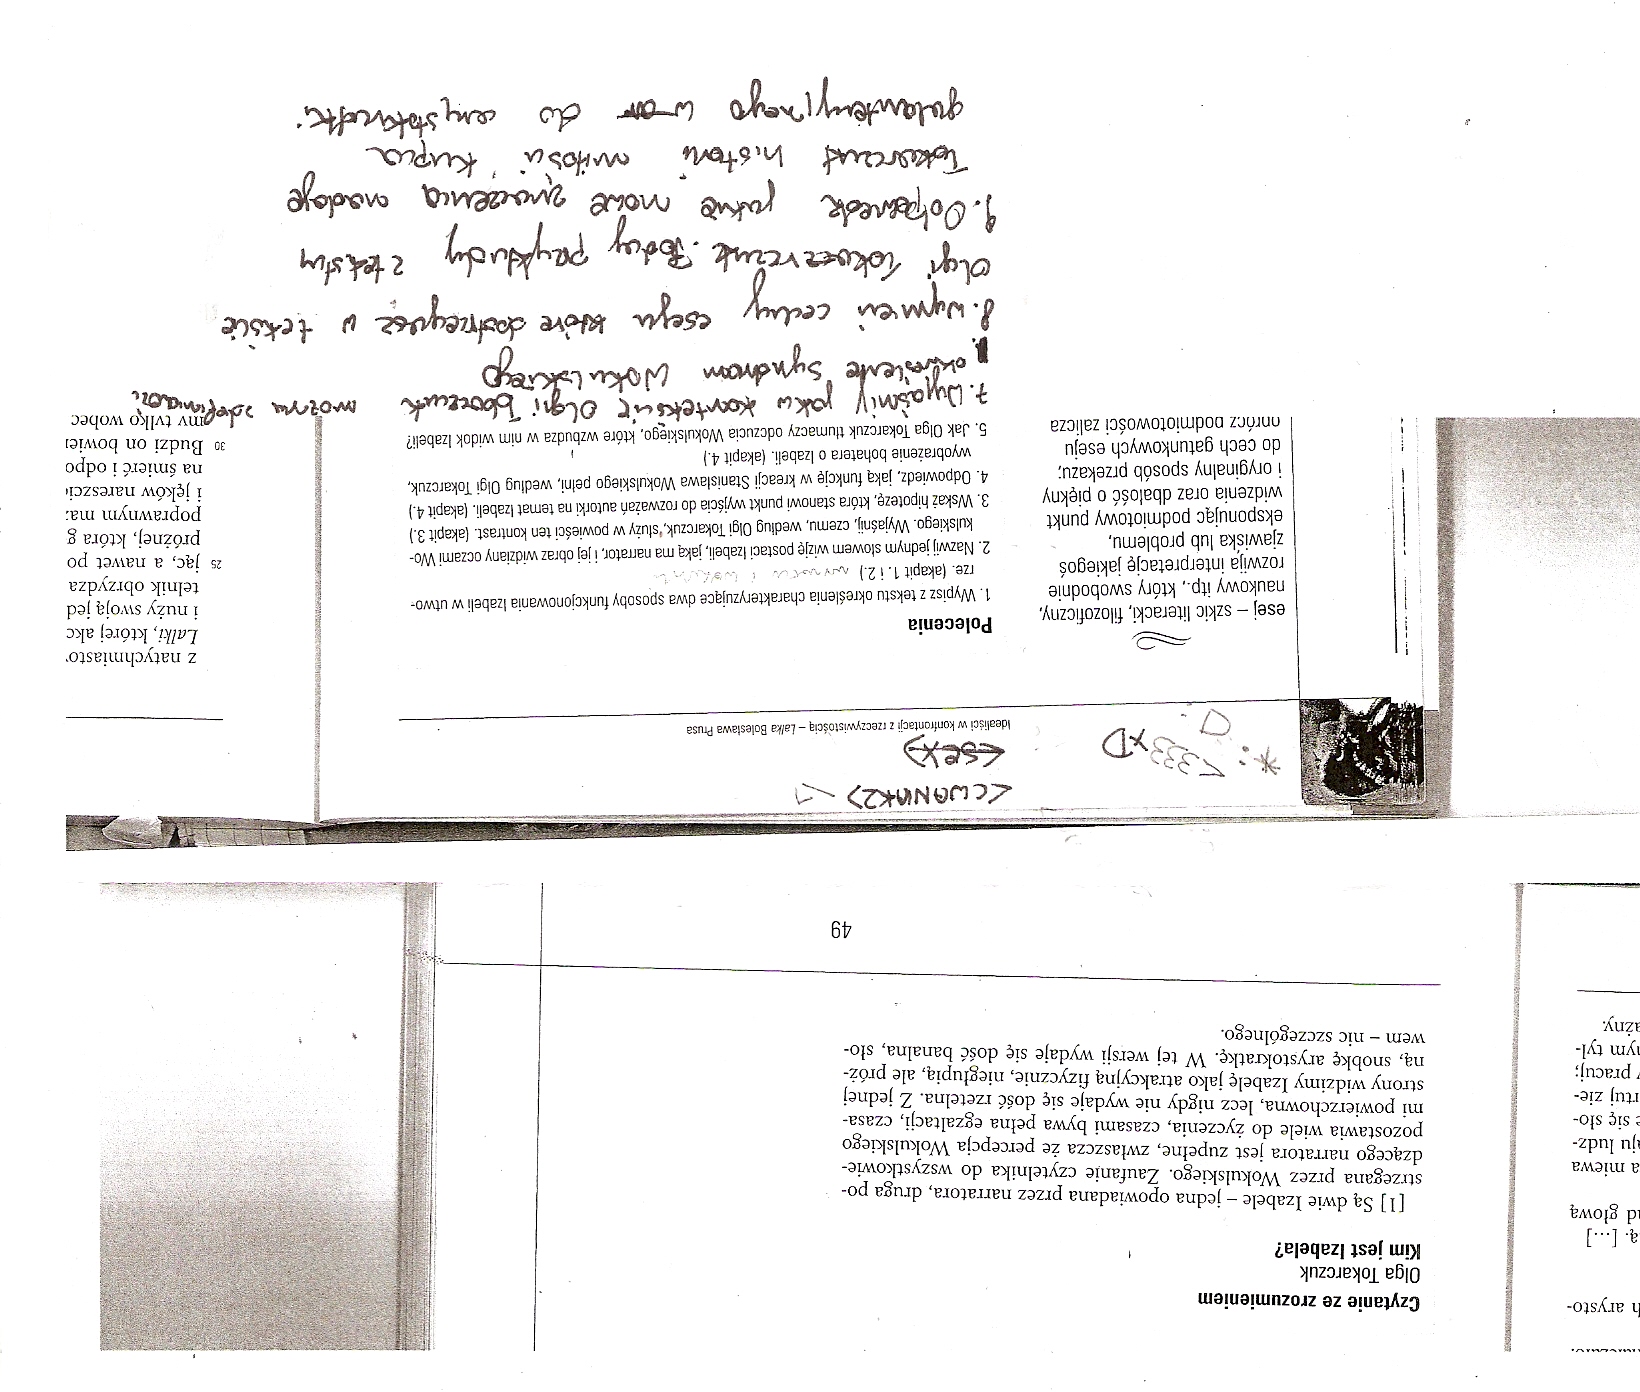 Czytanie ze zrozumieniem
Olga Tokarczuk
Kim jest Izabela?
[1] Są dwie Izabele – jedna opowiadana przez narratora, druga po-
strzegana przez Wokulskiego. Zaufanie czytelnika do wszystkowie-
dzącego narratora jest zupełne, zwłaszcza że percepcja Wokulskiego
pozostawia wiele do życzenia, czasami bywa pełna egzaltacji, czasa-
mi powierzchowna, lecz nigdy nie wydaje się dość rzetelna. Z jednej
strony widzimy Izabelę jako atrakcyjną fizycznie, niegłupią, ale próż-
ną, snobkę arystokratkę. W tej wersji wydaje się dość banalna, sło-
wem – nic szczególnego.
49
h arysto-
ą. [...]
d głową
a miewa
ju ludz-
e się sło-
rtuj zie-
y pracuj;
nym tyl-
ażny.
<CWANIAK2>
<SEX>
*: <333 xD
:D
Idealiści w konfrontacji z rzeczywistością – Lalka Bolesława Prusa
esej – szkic literacki, filozoficzny,
naukowy itp., który swobodnie
rozwija interpretację jakiegoś
zjawiska lub problemu,
eksponując podmiotowy punkt
widzenia oraz dbałość o piękny
i oryginalny sposób przekazu;
do cech gatunkowych eseju
oprócz podmiotowości zalicza
Polecenia
1. Wypisz z tekstu określenia charakteryzujące dwa sposoby funkcjonowania Izabeli w utwo-
rze. (akapit 1. i 2.)
2. Nazwij jednym słowem wizję postaci Izabeli, jaką ma narrator, i jej obraz widziany oczami Wo-
kulskiego. Wyjaśnij, czemu, według Olgi Tokarczuk, służy w powieści ten kontrast. (akapit 3.)
3. Wskaż hipotezę, która stanowi punkt wyjścia do rozważań autorki na temat Izabeli. (akapit 4.)
4. Odpowiedz, jaką funkcję w kreacji Stanisława Wokulskiego pełni, według Olgi Tokarczuk,
wyobrażenie bohatera o Izabeli. (akapit 4.)
5. Jak Olga Tokarczuk tłumaczy odczucia Wokulskiego, które wzbudza w nim widok Izabeli?
7. Wyjaśnij jak w kontekście Olgi można zdefiniować
określenie syndrom Wokulskiego
8. Wymień cechy eseju które dostrzegasz w tekście
Olgi Tokarczuk. Podaj przykłady z tekstu
9. Odpowiedz jakie nowe znaczenia nadaje
Tokarczuk historii miłości kupca
galanteryjnego do arystokratki.
z natychmiasto
Lalki, której akc
i nuży swoją jed
telnik obrzydza
25 jąc, a nawet po
próżnej, która g
poprawnym ma
i jęków nareszci
na śmierć i odpo
30 Budzi on bowie
my tylko wobec